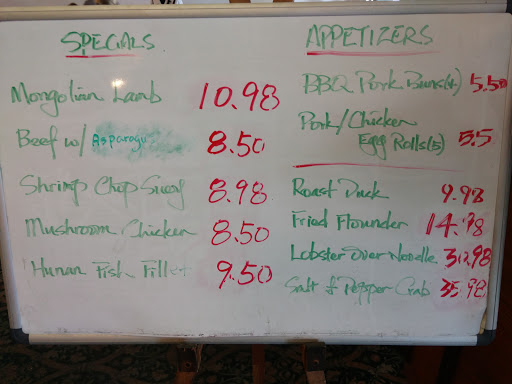 SPECIALS
Mongolian Lamb 10.98
Beef w/ Asparagus 8.50
Shrimp Chop Suey 8.98
Mushroom Chicken 8.50
Hunan Fish Fillet 9.50
APPETIZERS
BBQ Pork Buns(4) 5.50
Pork/Chicken
Egg Rolls(5) 5.5
Roast Duck 9.98
Fried Flounder 14.98
Lobster Over Noodle
Salt & Pepper Crab 35.98